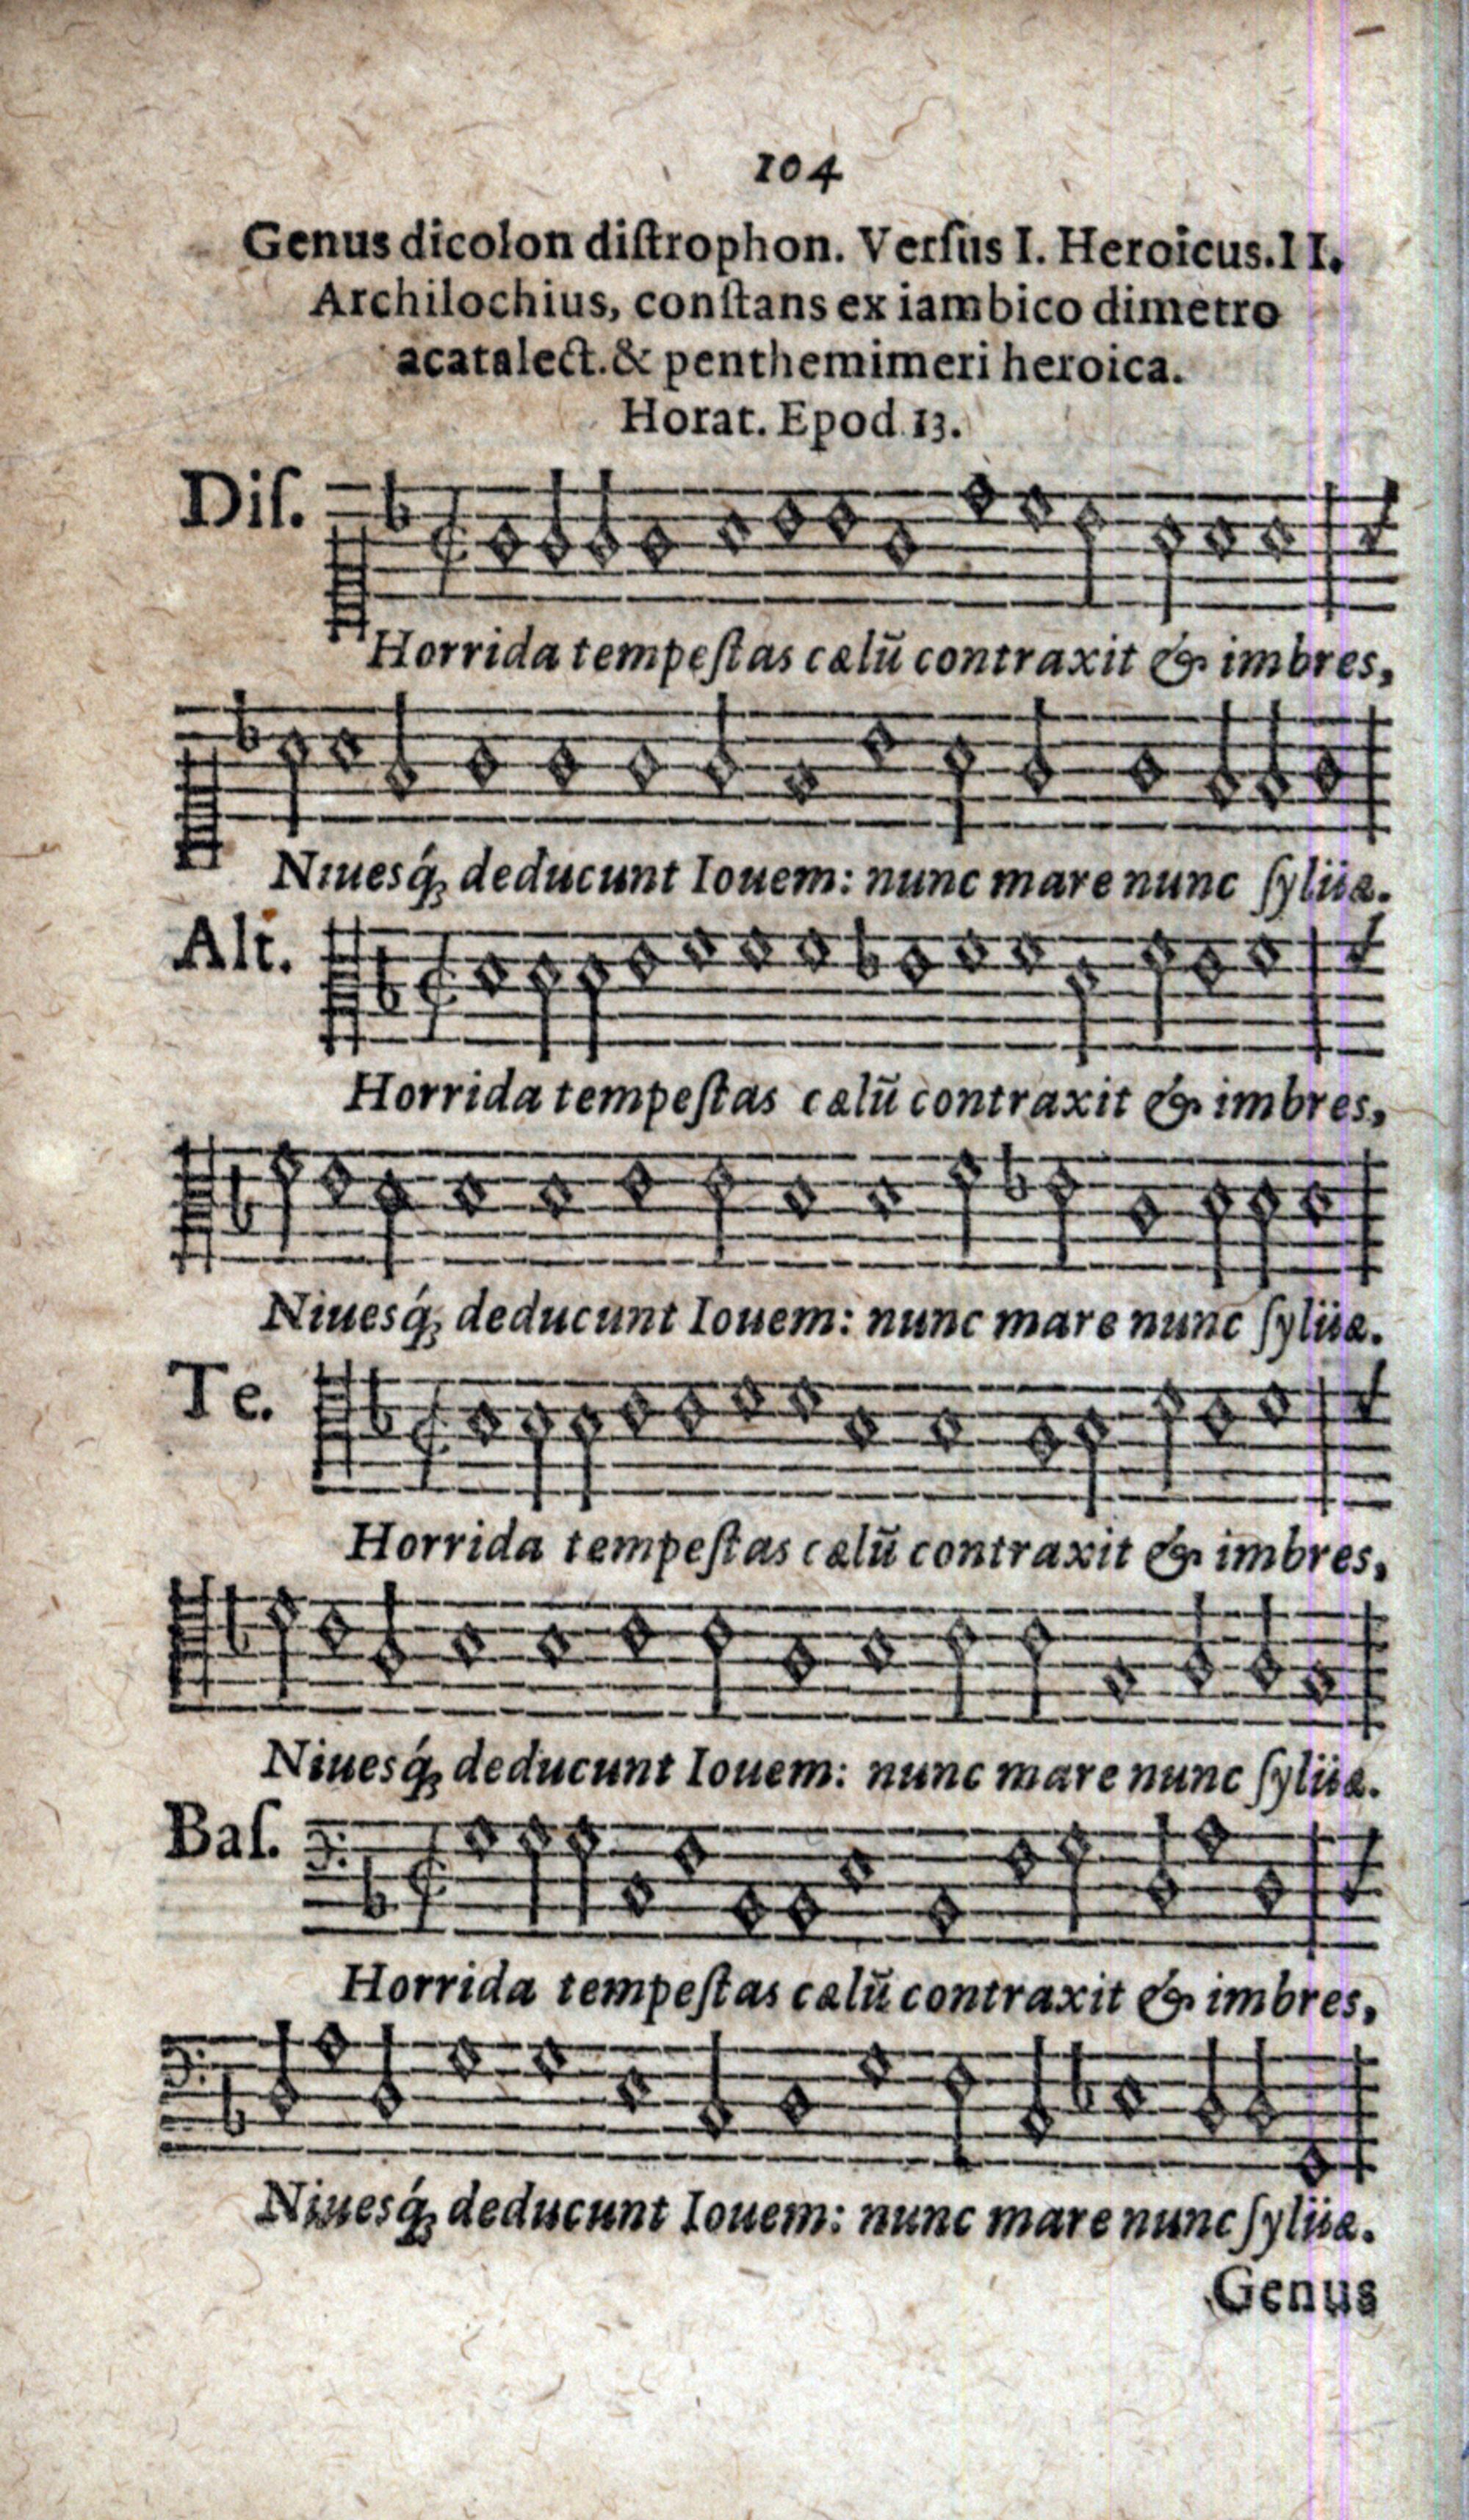 104
Genus dicolon diſtrophon. Verſus I. Heroicus. II.
Archilochius, conſtans ex iambico dimetro
acatalect. & penthemimeri heroica.
Horat. Epod. 13.
Diſ.
Horrida tempeſtas cælū contraxit & imbres,
Niuesq́; deducunt Iouem: nunc mare nunc ſylüæ.
Alt.
Horrida tempeſtas cælū contraxit & imbres,
Niuesq́; deducunt Iouem: nunc mare nunc ſylüæ.
Te.
Horrida tempeſtas cælū contraxit & imbres,
Niuesq́; deducunt Iouem: nunc mare nunc ſylüæ.
Baſ.
Horrida tempeſtas cælū contraxit & imbres,
Niuesq́; deducunt Iouem: nunc mare nunc ſylüæ.
Genus